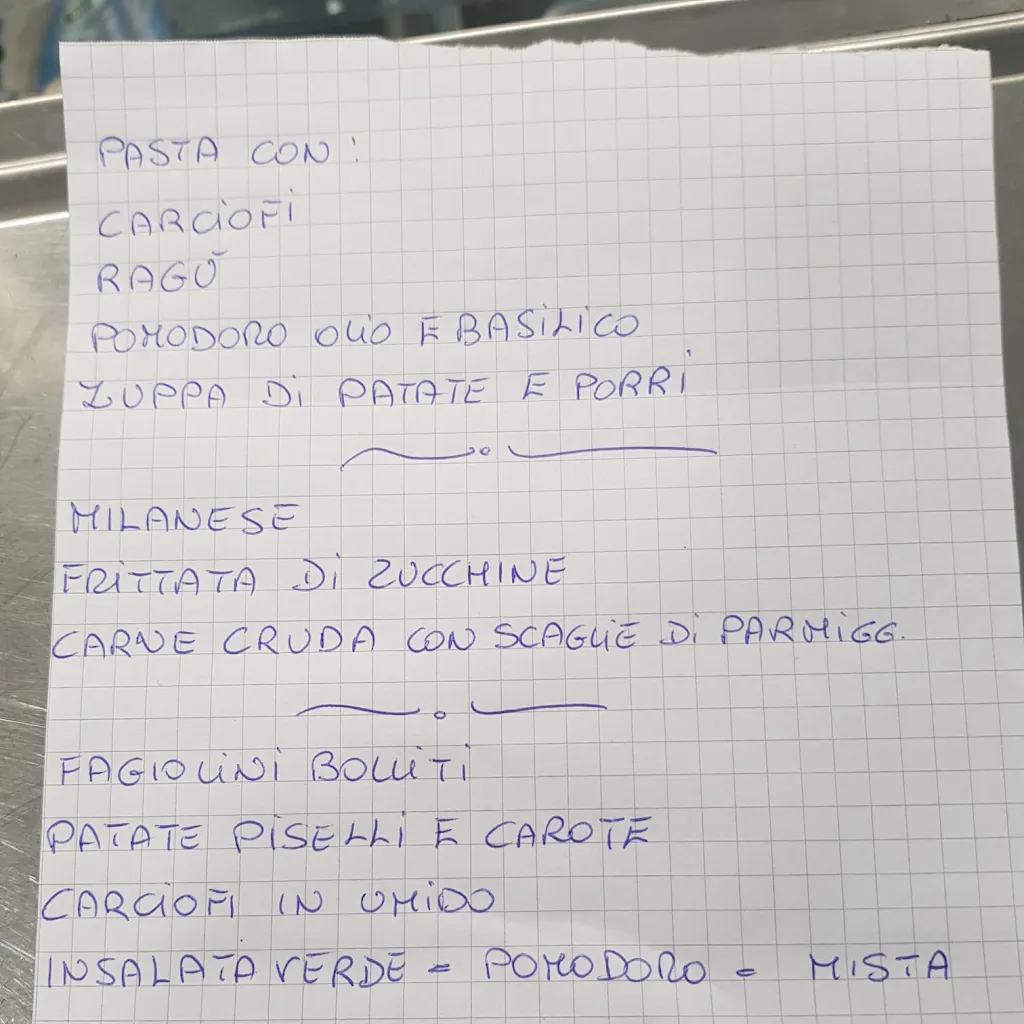 PASTA CON:
CARCIOFI
RAGÙ
POMODORO OLIO E BASILICO
ZUPPA DI PATATE E PORRI
MILANESE
FRITTATA DI ZUCCHINE
CARNE CRUDA CON SCAGLIE DI PARMIGG.
FAGIOLINI BOLLITI
PATATE PISELLI E CAROTE
CARCIOFI IN UMIDO
INSALATA VERDE - POMODORO - MISTA